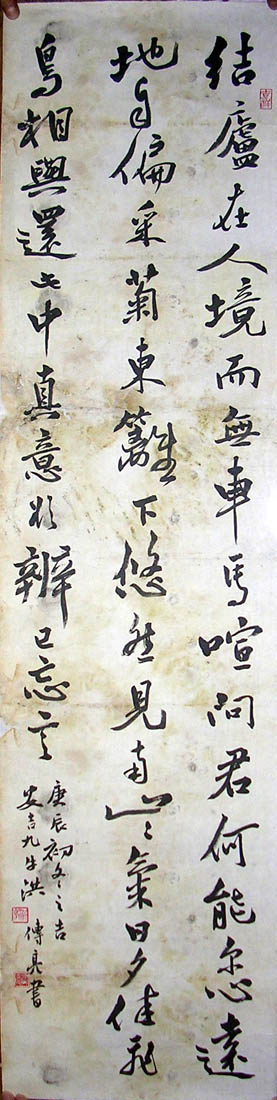 結廬在人境而無車馬喧問君何能尔心遠
地自偏采菊東籬下悠然見南山〻氣日夕佳飛
鳥相與還此中真意欲辨已忘言
庚辰初冬之吉
安吉九洪傳亮書